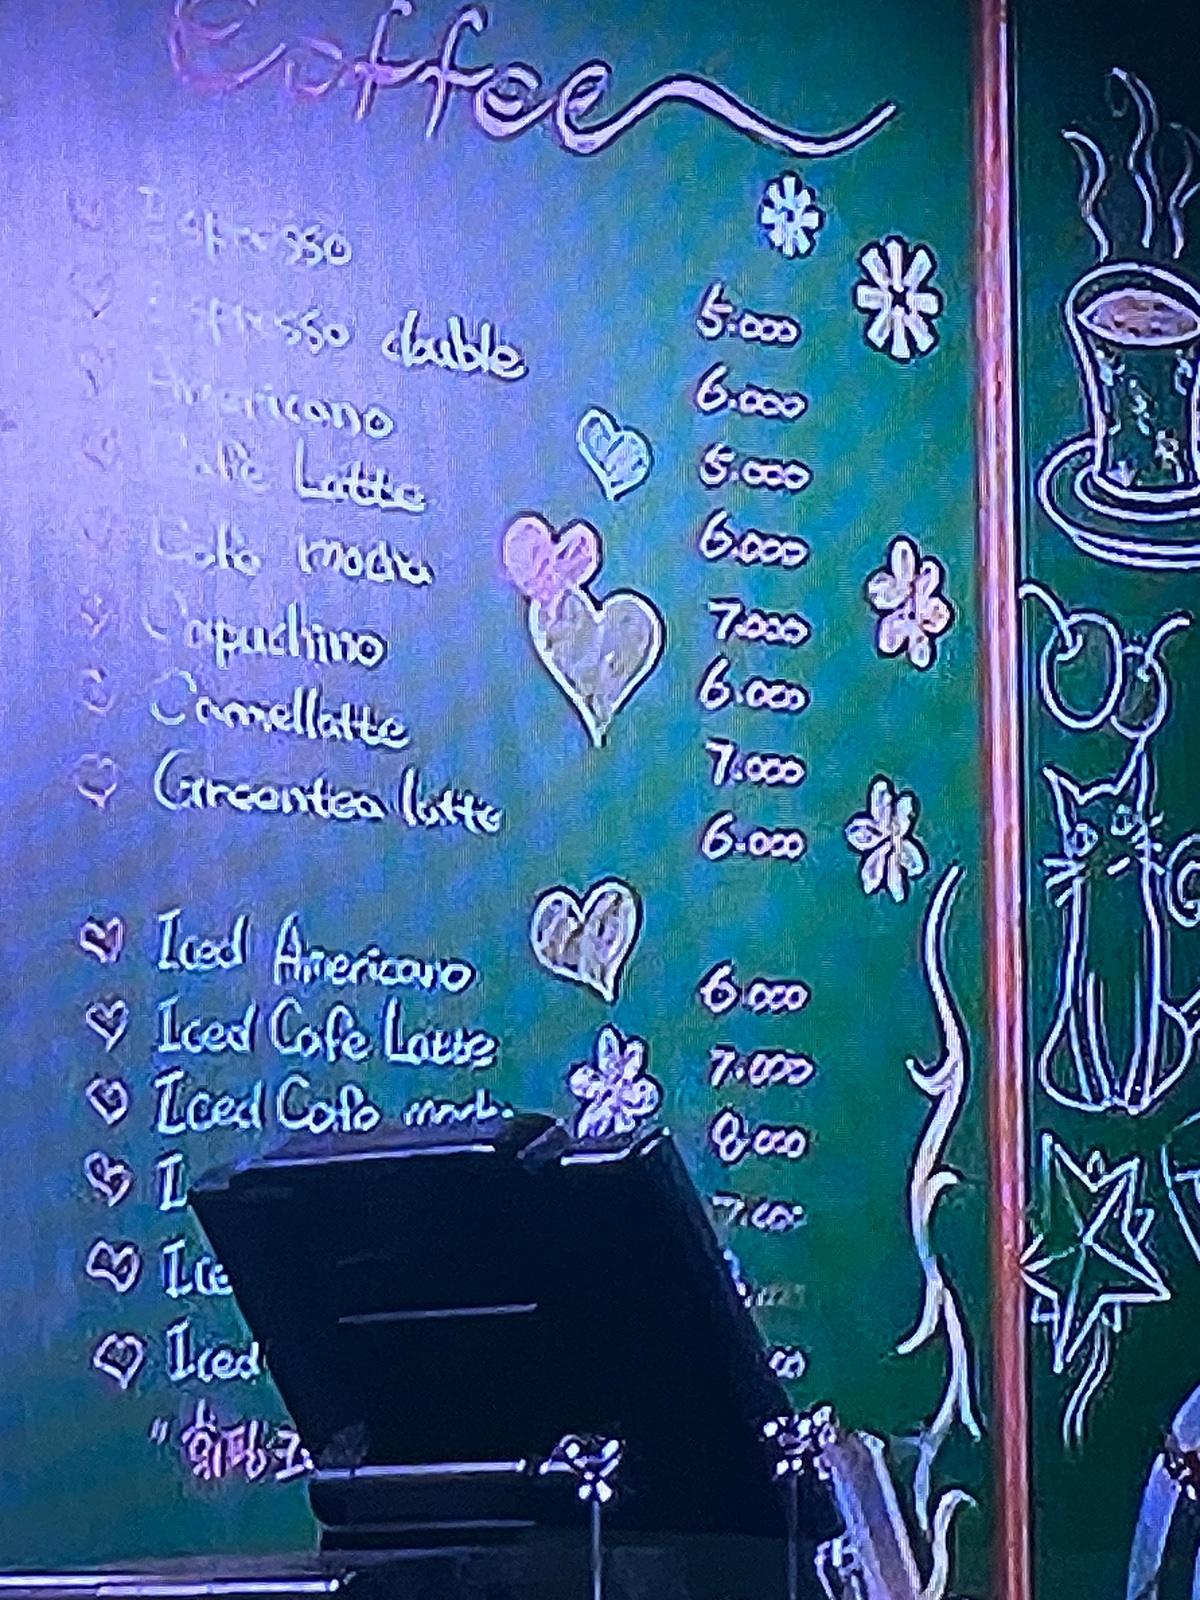 Coffee
Espresso 5.000
Espresso double 6.000
Americano 5.000
Cafe Latte 6.000
Cafe mocha 7.000
Capuchino 6.000
Camellatte 7.000
Greentea latte 6.000
Iced Americano 6.000
Iced Cafe Latte 7.000
Iced Cafe 8.000
7.000
Iced